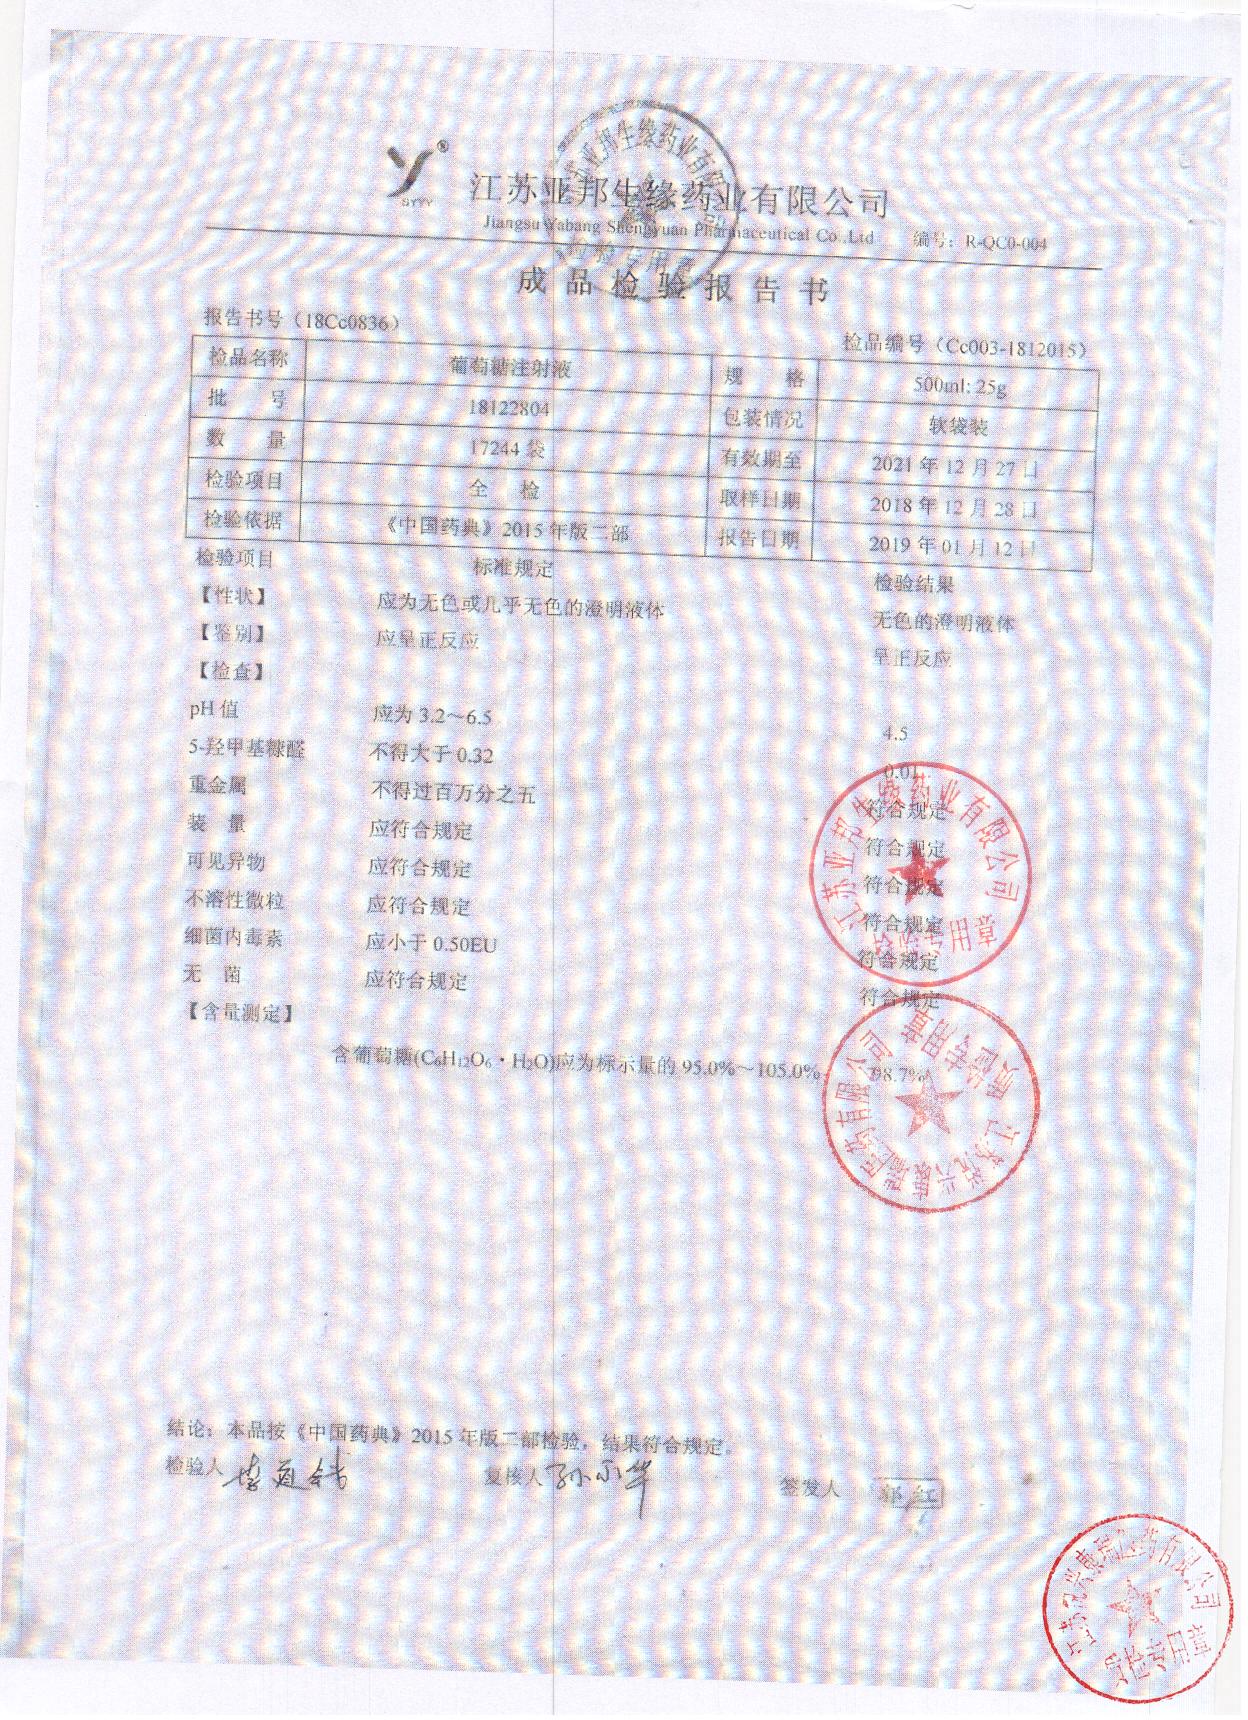 SYYY ®
江苏亚邦生缘药业有限公司
Jiangsu Yabang Shengyuan Pharmaceutical Co.,Ltd 编号：R-QC0-004
成品检验报告书
报告书号（18Cc0836） 检品编号（Cc003-1812015）
检品名称 葡萄糖注射液 规 格 500ml: 25g
批 号 18122804 包装情况 软袋装
数 量 17244 袋 有效期至 2021 年 12 月 27 日
检验项目 全 检 取样日期 2018 年 12 月 28 日
检验依据 《中国药典》2015 年版二部 报告日期 2019 年 01 月 12 日
检验项目 标准规定 检验结果
【性状】 应为无色或几乎无色的澄明液体 无色的澄明液体
【鉴别】 应呈正反应 呈正反应
【检查】
pH 值 应为 3.2～6.5 4.5
5-羟甲基糠醛 不得大于 0.32 0.01
重金属 不得过百万分之五 符合规定
装 量 应符合规定 符合规定
可见异物 应符合规定 符合规定
不溶性微粒 应符合规定 符合规定
细菌内毒素 应小于 0.50EU 符合规定
无 菌 应符合规定 符合规定
【含量测定】
含葡萄糖(C₆H₁₂O₆・H₂O)应为标示量的 95.0%～105.0% 98.7%
江苏亚邦生缘药业有限公司
检验专用章
医药有限公司
质检专用章
结论：本品按《中国药典》2015 年版二部检验，结果符合规定。
检验人 复核人 签发人 郭红
医药有限公司
质检专用章